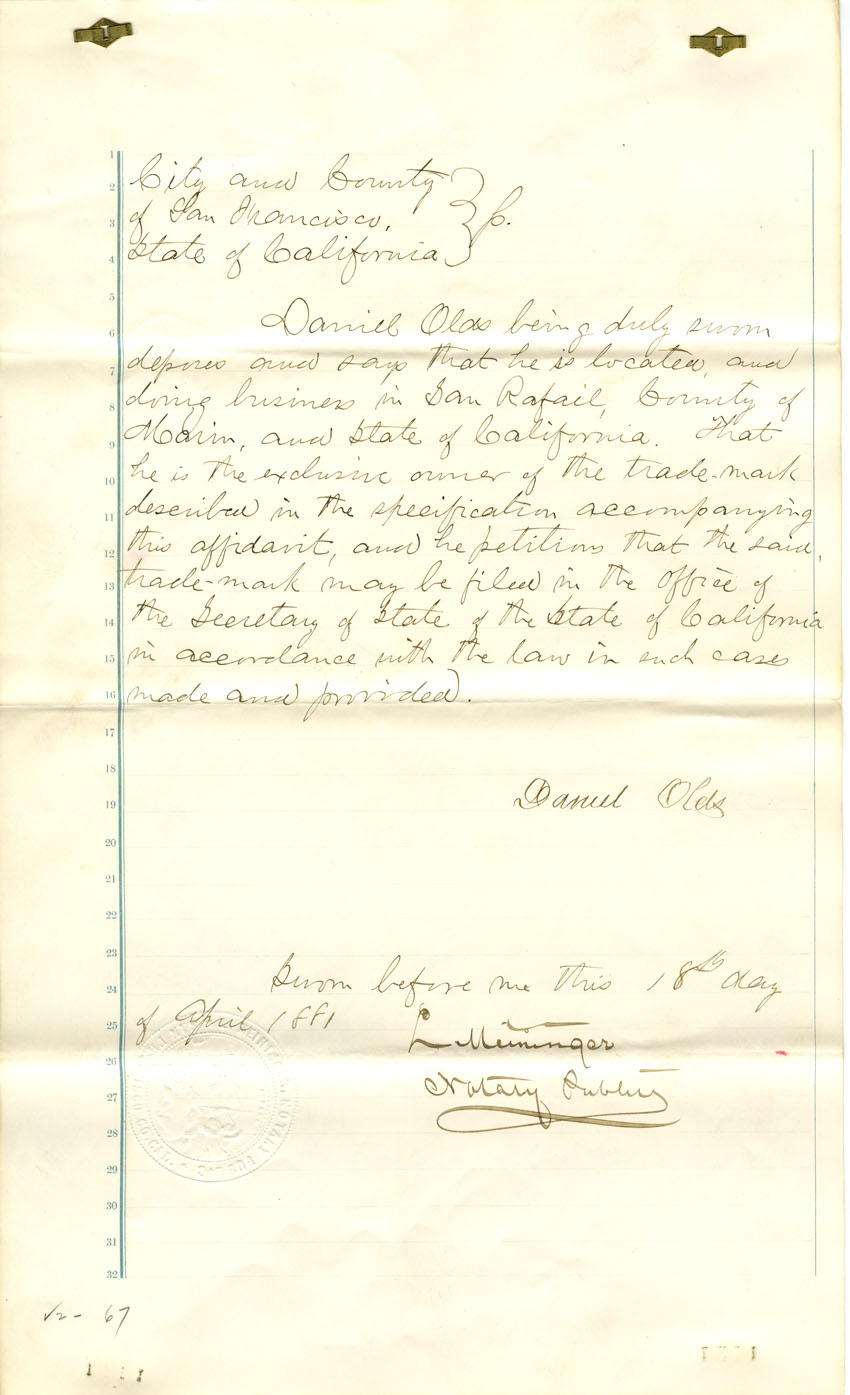 City and County
of San Francisco, } ss.
State of California
Daniel Olds being duly sworn
deposes and says that he is located, and
doing business in San Rafail, County of
Marin, and State of California. That
he is the exclusive owner of the trade-mark
described in the specification accompanying
this affidavit, and he petitions that the said,
trade-mark may be filed in the office of
the Secretary of State of the State of California
in accordance with the law in such cases
made and provided.
Daniel Olds
Sworn before me this 18th day
of April 1881
L Meininger
Notary Public
1
2
3
4
5
6
7
8
9
10
11
12
13
14
15
16
17
18
19
20
21
22
23
24
25
26
27
28
29
30
31
32
67